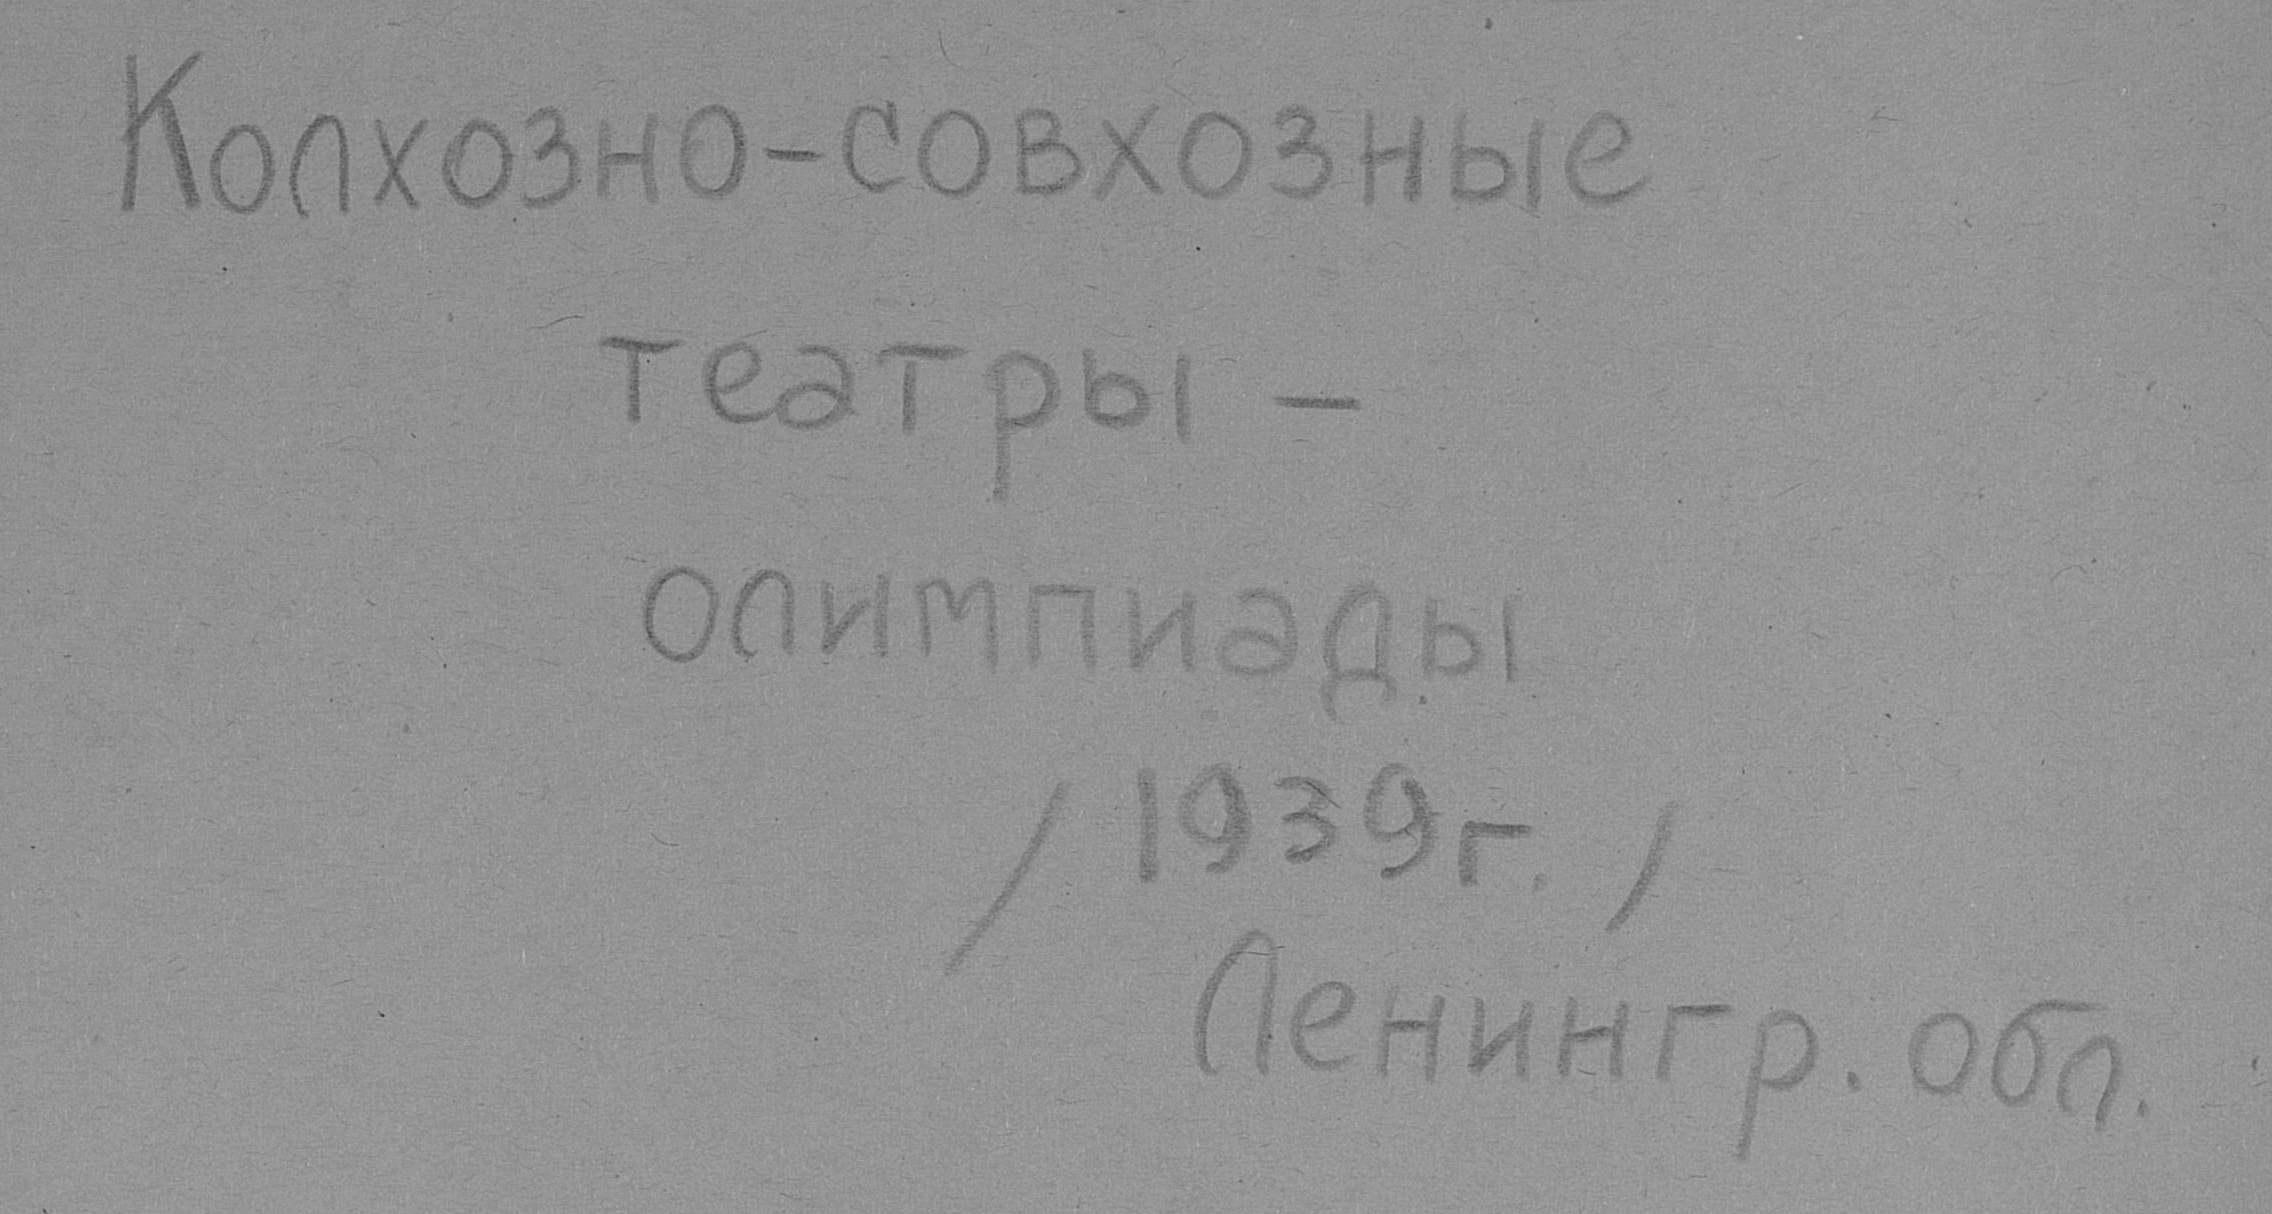 Колхозно-совхозные
театры -
олимпиады
/1939г./
Ленингр. обл.